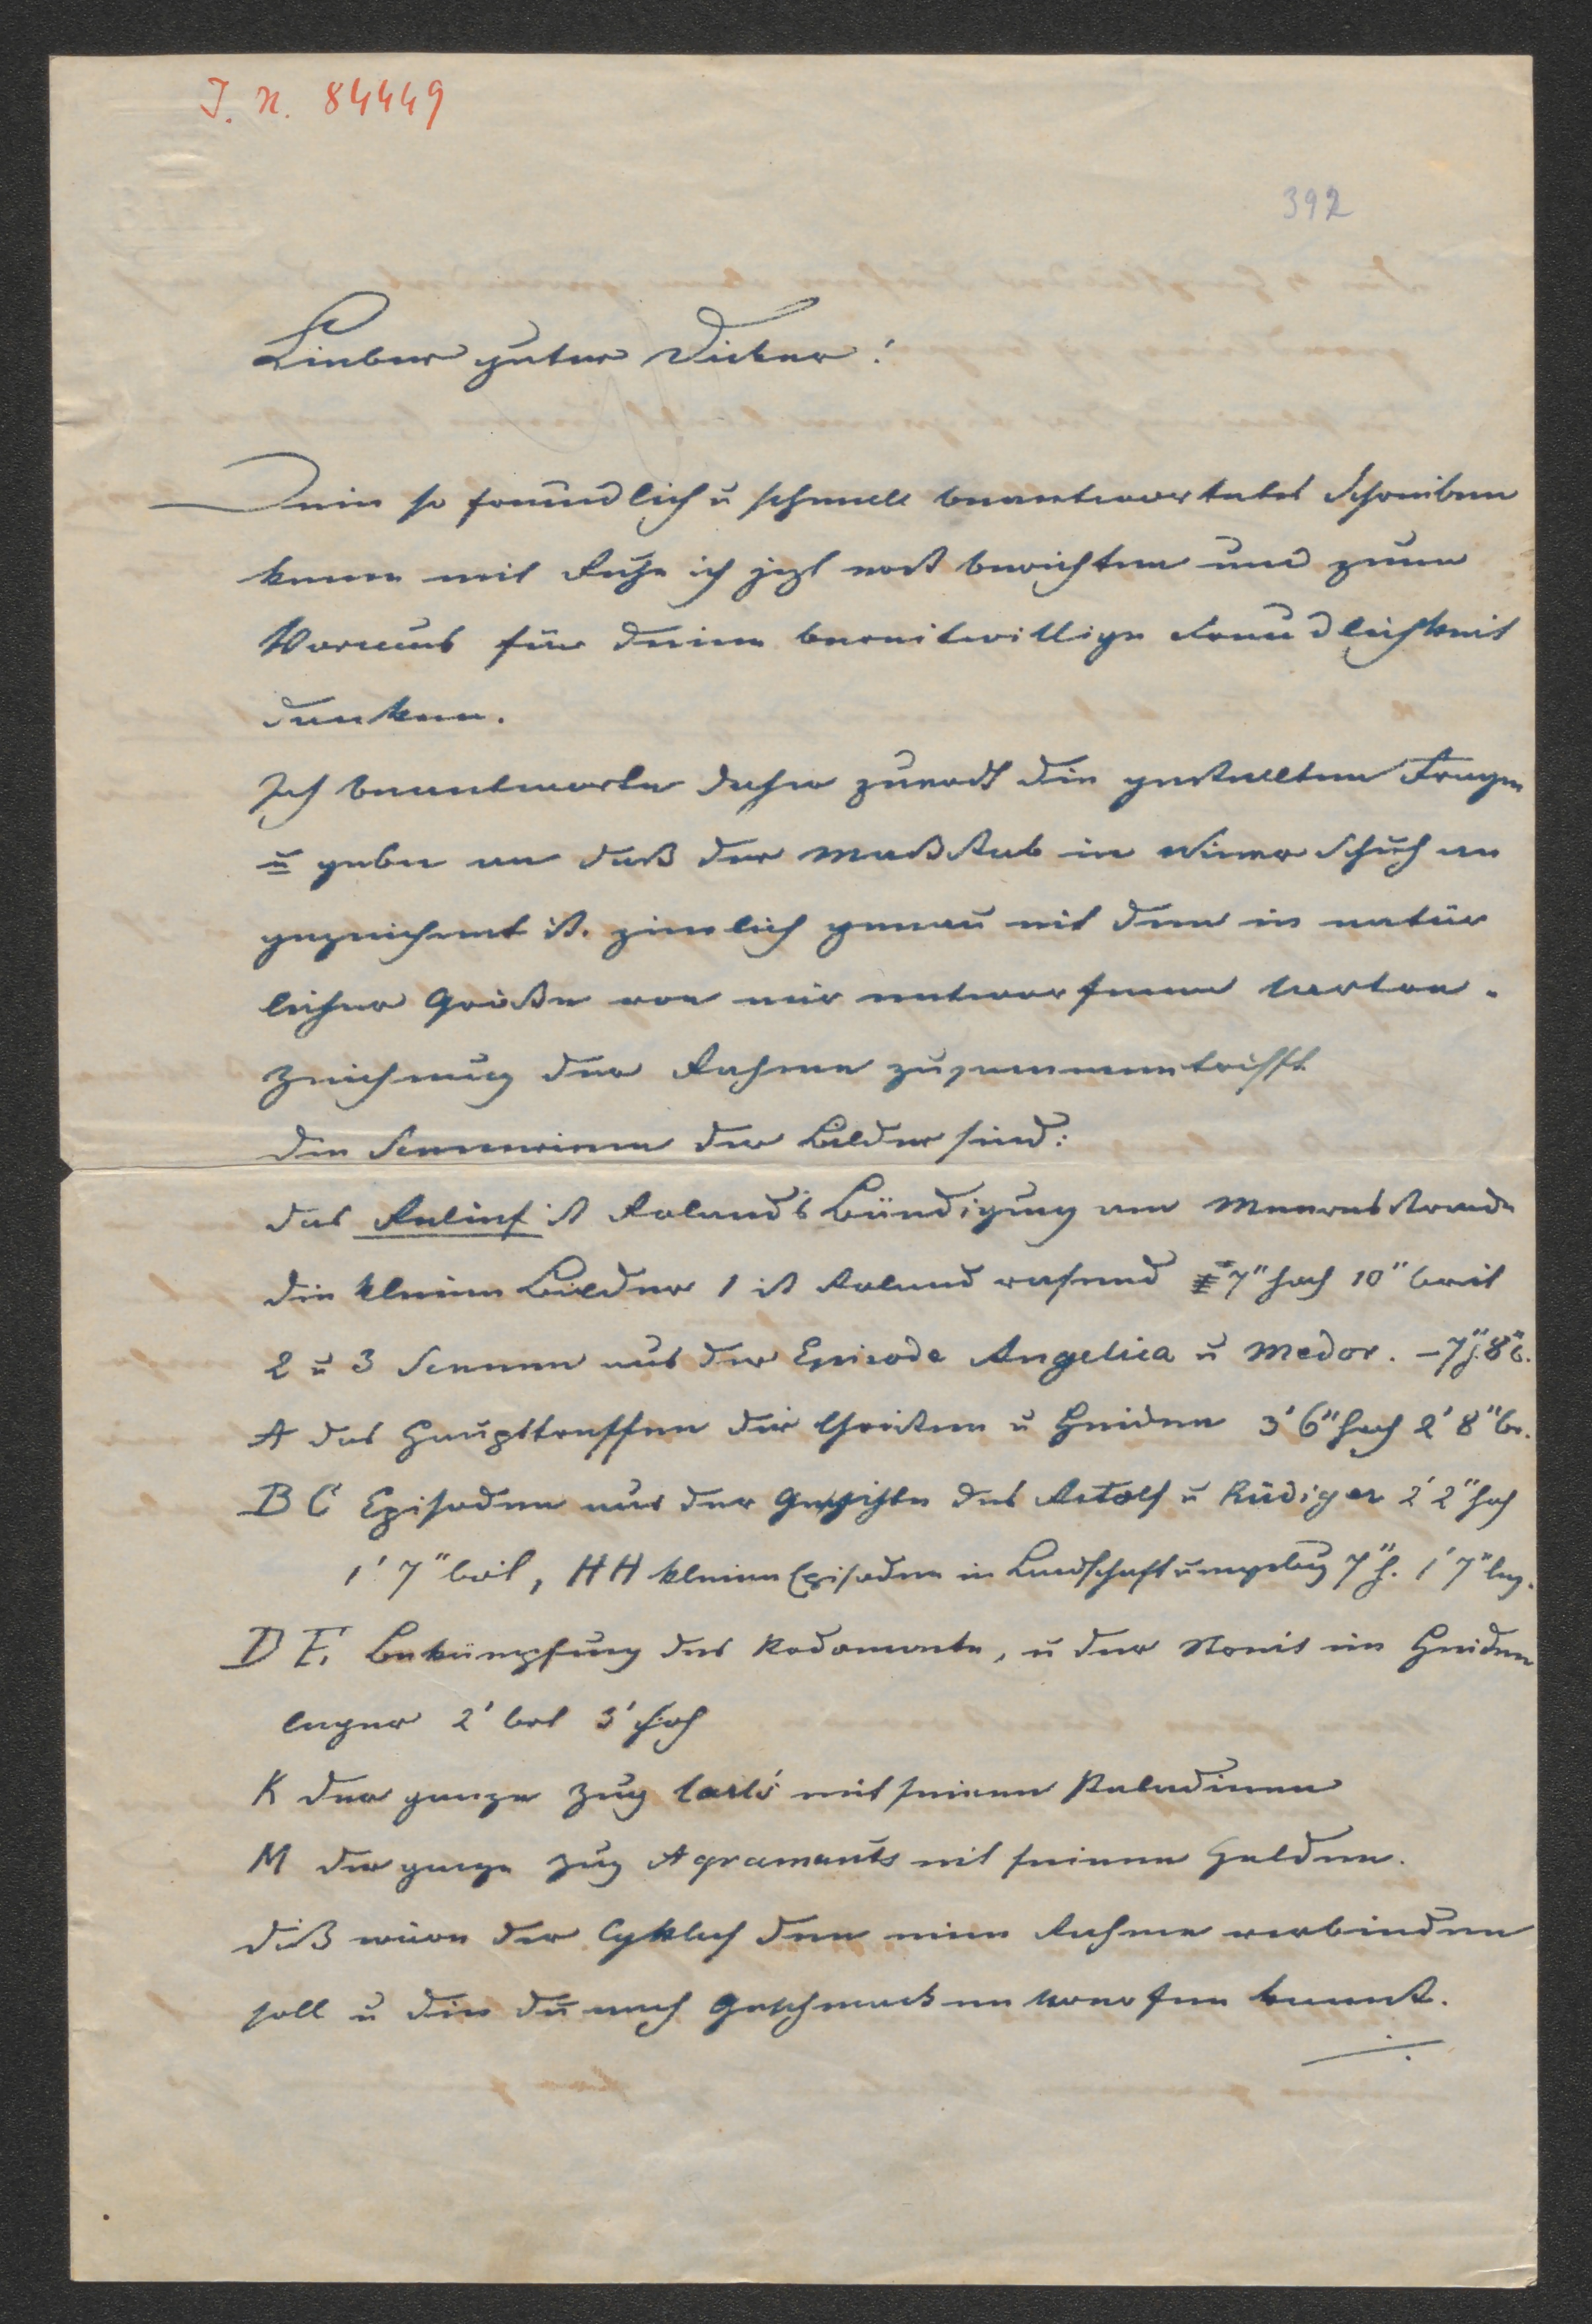 J. N. 84449
392
Lieber guter Dicker!
Dein so freundlich u schnell beantwortetes Schreiben
kann mit Ruhe ich jezt erst berichten und zum
Voraus für deine bereitwillige Freundlichkeit
danken.
Ich beantworte daher zuerst die gestellten Fragen
u gebe an daß der Maßstab in Winer Schuh an
gezeichnet ist. zimlich genau mit den in natür
licher Größe von mir entworfenen Carton-
zeichnung der Rahme zusammentrifft
Die Scenerien der Bilder sind:
das Relief ist Roland's Bändigung am Meeresstrande
die kleinen Bilder 1 ist Roland rasend 7" hoch 10" breit
2 u 3 Scenen aus der Episode Angelica u Medor. – 7" h. 8" b.
A das Haupttreffen der Christen u Heiden 3' 6" hoch 2' 8" br.
B C Episoden aus der Geschichte des Astolf u Rüdiger 2' 2" hoh
1' 7" breit, HH kleine Episoden in Landschaftumgebug 7" h. 1' 7" lag.
D E. Bekämpfung des Rodomonte, u der Streit im Heiden
lager 2' brt 3' hoh
K der ganze Zug Carls mit seinen Paladinen
M der ganze Zug Agramants mit seinen Helden.
diß wäre der Cyklus den eine Rahme verbinden
soll u die du nach Geschmack entwerfen kannst.